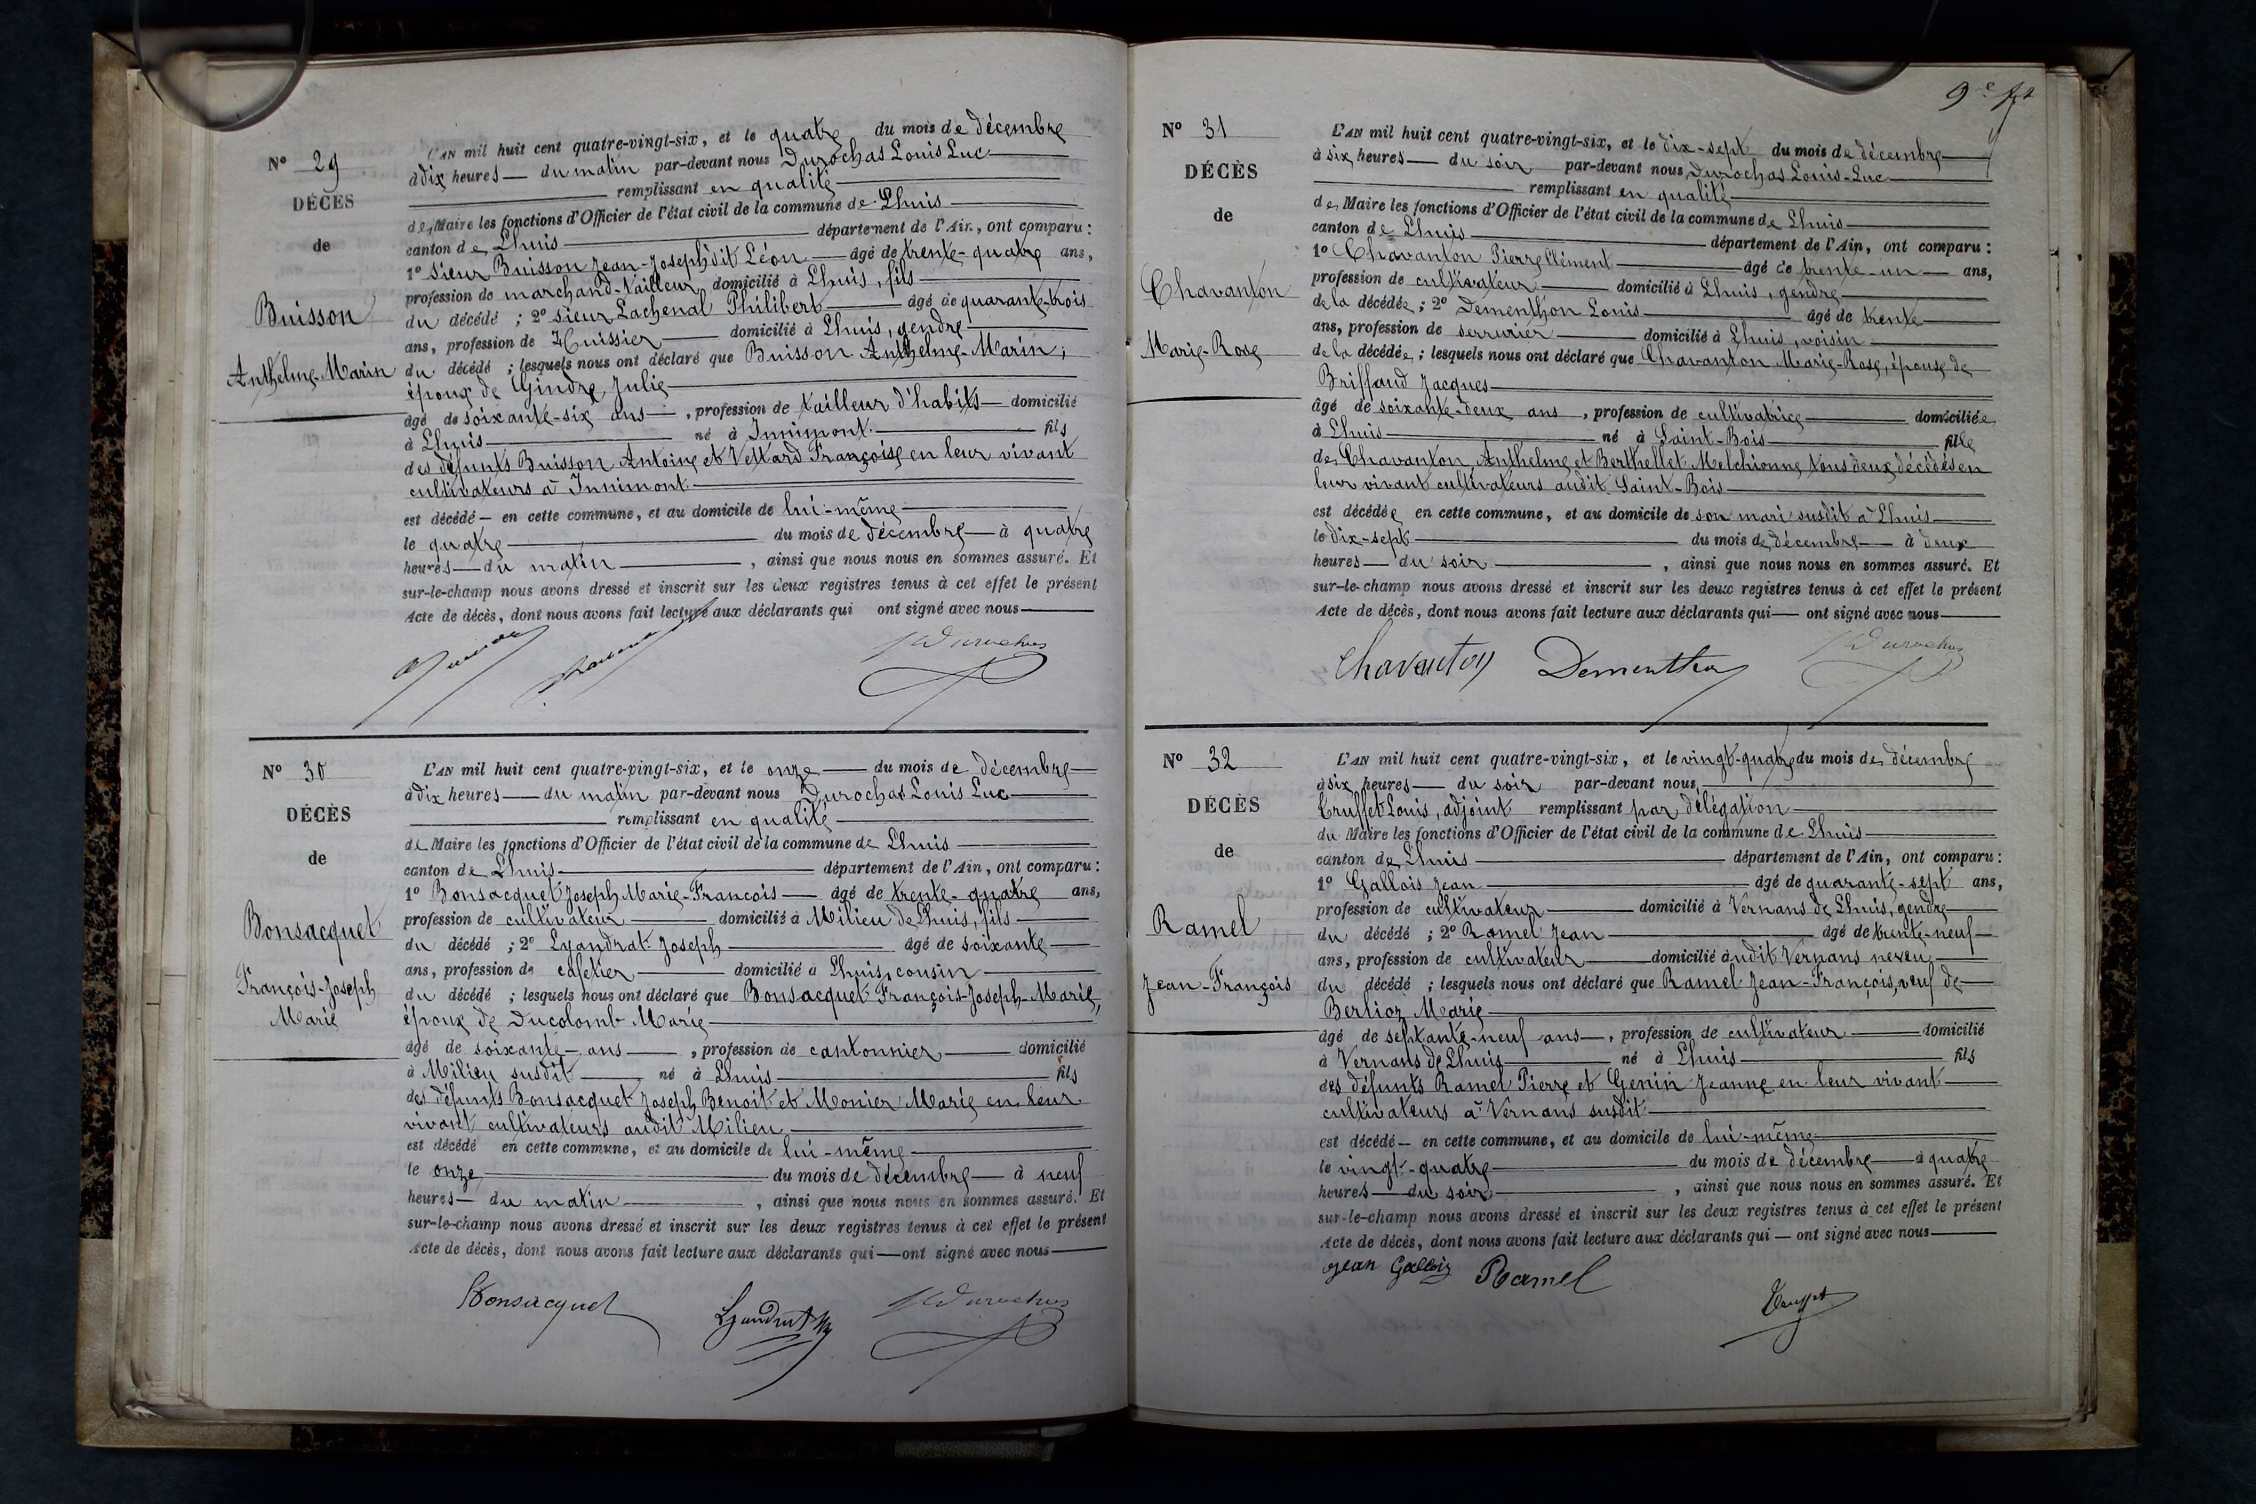 Nº 29
DÉCÈS
de
Buisson
Anthelme-Marin
L'AN mil huit cent quatre-vingt-six, et le quatre du mois de décembre
à dix heures du matin par-devant nous Durochas Louis Luc
remplissant en qualité
de Maire les fonctions d'Officier de l'état civil de la commune de Lhuis
canton de Lhuis département de l'Ain, ont comparu :
1º sieur Buisson Jean-Joseph dit Léon âgé de trente-quatre ans,
profession de marchand-tailleur domicilié à Lhuis, fils
du décédé ; 2º sieur Lachenal Philibert âgé de quarante-trois
ans, profession de Huissier domicilié à Lhuis, gendre
du décédé ; lesquels nous ont déclaré que Buisson Anthelme-Marin,
époux de Gindre Julie
âgé de soixante-six ans, profession de tailleur d'habits domicilié
à Lhuis né à Innimont fils
des défunts Buisson Antoine et Vettard Françoise en leur vivant
cultivateurs à Innimont.
est décédé en cette commune, et au domicile de lui-même
le quatre du mois de décembre à quatre
heures du matin, ainsi que nous nous en sommes assuré. Et
sur-le-champ nous avons dressé et inscrit sur les deux registres tenus à cet effet le présent
Acte de décès, dont nous avons fait lecture aux déclarants qui ont signé avec nous
Durochas
Nº 30
DÉCÈS
de
Bonsacquet
François-Joseph
Marie
L'AN mil huit cent quatre-vingt-six, et le onze du mois de décembre
à dix heures du matin par-devant nous Durochas Louis Luc
remplissant en qualité
de Maire les fonctions d'Officier de l'état civil de la commune de Lhuis
canton de Lhuis département de l'Ain, ont comparu :
1º Bonsacquet Joseph Marie-François âgé de trente-quatre ans,
profession de cultivateur domicilié à Milieu de Lhuis, fils
du décédé ; 2º Lyandrat Joseph âgé de soixante
ans, profession de cafetier domicilié à Lhuis, cousin
du décédé ; lesquels nous ont déclaré que Bonsacquet François-Joseph-Marie,
époux de Ducolomb Marie
âgé de soixante ans, profession de cantonnier domicilié
à Milieu susdit né à Lhuis fils
des défunts Bonsacquet Joseph Benoit et Monier Marie en leur
vivant cultivateurs audit Milieu
est décédé en cette commune, et au domicile de lui-même
le onze du mois de décembre à neuf
heures du matin, ainsi que nous nous en sommes assuré. Et
sur-le-champ nous avons dressé et inscrit sur les deux registres tenus à cet effet le présent
Acte de décès, dont nous avons fait lecture aux déclarants qui ont signé avec nous
Bonsacquet Lyandrat Durochas
9e ft
Nº 31
DÉCÈS
de
Chavanton
Marie-Rose
L'AN mil huit cent quatre-vingt-six, et le dix-sept du mois de décembre
à six heures du soir par-devant nous Durochas Louis-Luc
remplissant en qualité
de Maire les fonctions d'Officier de l'état civil de la commune de Lhuis
canton de Lhuis département de l'Ain, ont comparu :
1º Chavanton Pierre Clément âgé de trente-un ans,
profession de cultivateur domicilié à Lhuis, gendre
de la décédée ; 2º Dementhon Louis âgé de trente
ans, profession de serrurier domicilié à Lhuis, voisin
de la décédée ; lesquels nous ont déclaré que Chavanton Marie-Rose, épouse de
Briffaud Jacques
âgé de soixante-deux ans, profession de cultivatrice domiciliée
à Lhuis né à Saint-Bois fille
de Chavanton Anthelme et Berthellet Melchionne tous deux décédés en
leur vivant cultivateurs audit Saint-Bois
est décédée en cette commune, et au domicile de son mari susdit à Lhuis
le dix-sept du mois de décembre à deux
heures du soir, ainsi que nous nous en sommes assuré. Et
sur-le-champ nous avons dressé et inscrit sur les deux registres tenus à cet effet le présent
Acte de décès, dont nous avons fait lecture aux déclarants qui ont signé avec nous
Chavanton Dementhon Durochas
Nº 32
DÉCÈS
de
Ramel
Jean-François
L'AN mil huit cent quatre-vingt-six, et le vingt-quatre du mois de décembre
à six heures du soir par-devant nous,
Truffet Louis, adjoint remplissant par délégation
du Maire les fonctions d'Officier de l'état civil de la commune de Lhuis
canton de Lhuis département de l'Ain, ont comparu :
1º Gallois Jean âgé de quarante-sept ans,
profession de cultivateur domicilié à Vernans de Lhuis, gendre
du décédé ; 2º Ramel Jean âgé de trente-neuf
ans, profession de cultivateur domicilié audit Vernans neveu
du décédé ; lesquels nous ont déclaré que Ramel Jean-François, veuf de
Berlioz Marie
âgé de septante-neuf ans, profession de cultivateur domicilié
à Vernans de Lhuis né à Lhuis fils
des défunts Ramel Pierre et Genin Jeanne en leur vivant
cultivateurs à Vernans susdit
est décédé en cette commune, et au domicile de lui-même
le vingt-quatre du mois de décembre à quatre
heures du soir, ainsi que nous nous en sommes assuré. Et
sur-le-champ nous avons dressé et inscrit sur les deux registres tenus à cet effet le présent
Acte de décès, dont nous avons fait lecture aux déclarants qui ont signé avec nous
Jean Gallois Ramel
Truffet